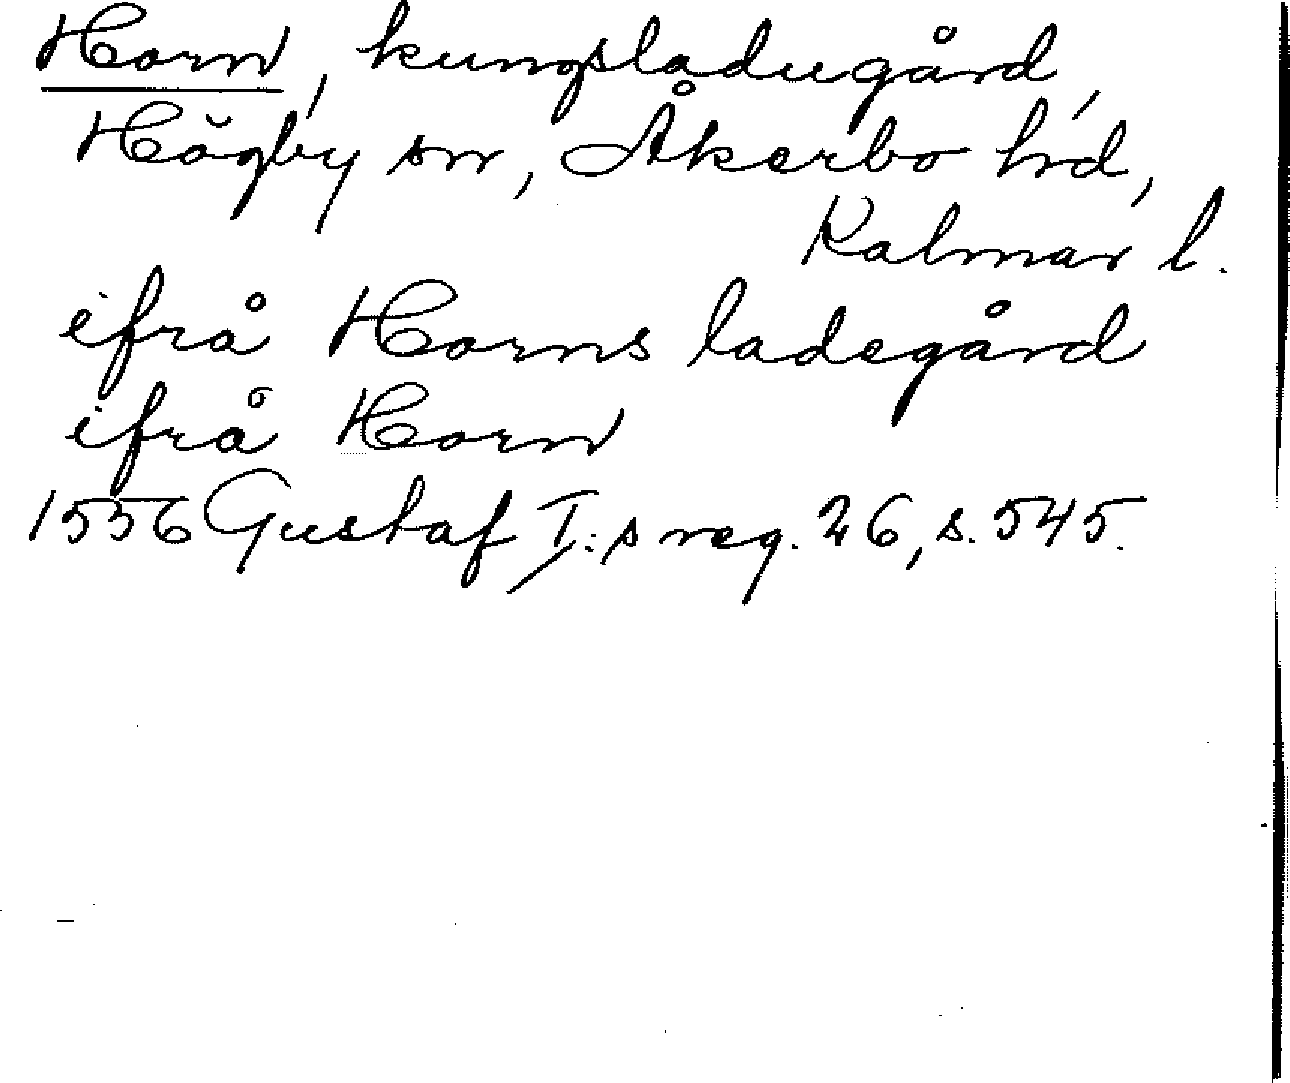 Horn, kungsladugård,
Högby sn, Åkerbo hd,
Kalmar l.
ifrå Horns ladegård
ifrå Horn
1556 Gustaf I:s reg. 26, s. 545.